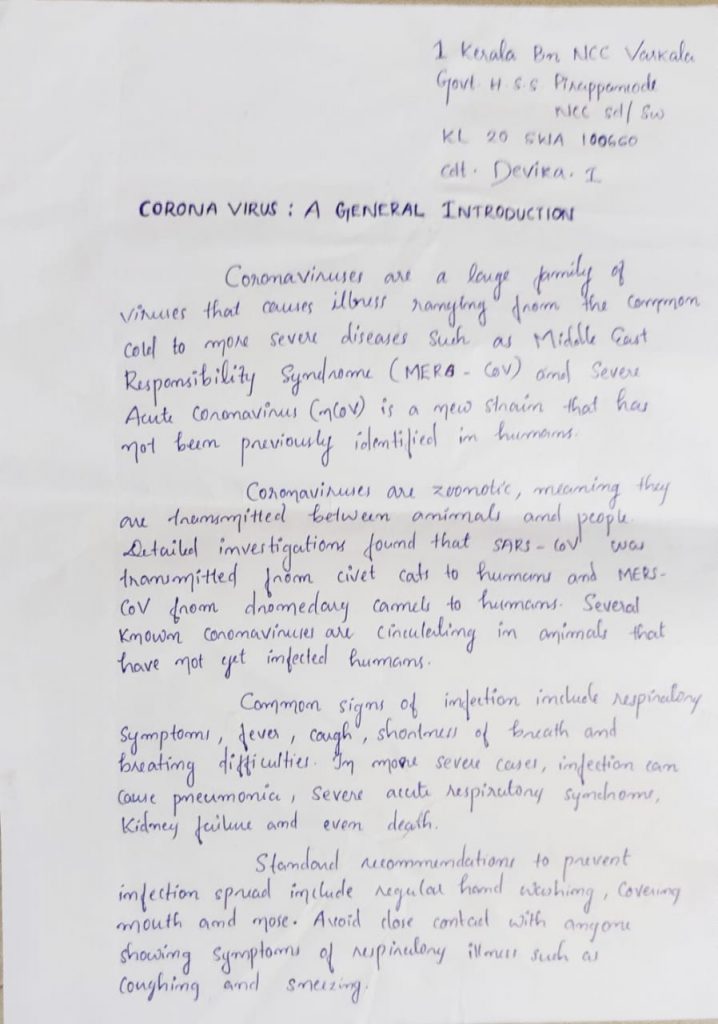 1 Kerala Bn NCC Varkala
Govt. H.S.S Pirappamcode
NCC Sd/Sw
KL 20 SWA 100660
Cdt. Devika. I
CORONA VIRUS : A GENERAL INTRODUCTION
Coronaviruses are a large family of
viruses that causes illness ranging from the common
cold to more severe diseases such as Middle East
Responsibility Syndrome (MERS - CoV) and Severe
Acute Coronavirus (nCoV) is a new strain that has
not been previously identified in humans.
Coronaviruses are zoonotic, meaning they
are transmitted between animals and people.
Detailed investigations found that SARS-CoV was
transmitted from civet cats to humans and MERS-
CoV from dromedary camels to humans. Several
known coronaviruses are circulating in animals that
have not yet infected humans.
Common signs of infection include respiratory
symptoms, fever, cough, shortness of breath and
breating difficulties. In more severe cases, infection can
cause pneumonia, severe acute respiratory syndrome,
kidney failure and even death.
Standard recommendations to prevent
infection spread include regular hand washing, covering
mouth and nose. Avoid close contact with anyone
showing symptoms of respiratory illness such as
coughing and sneezing.